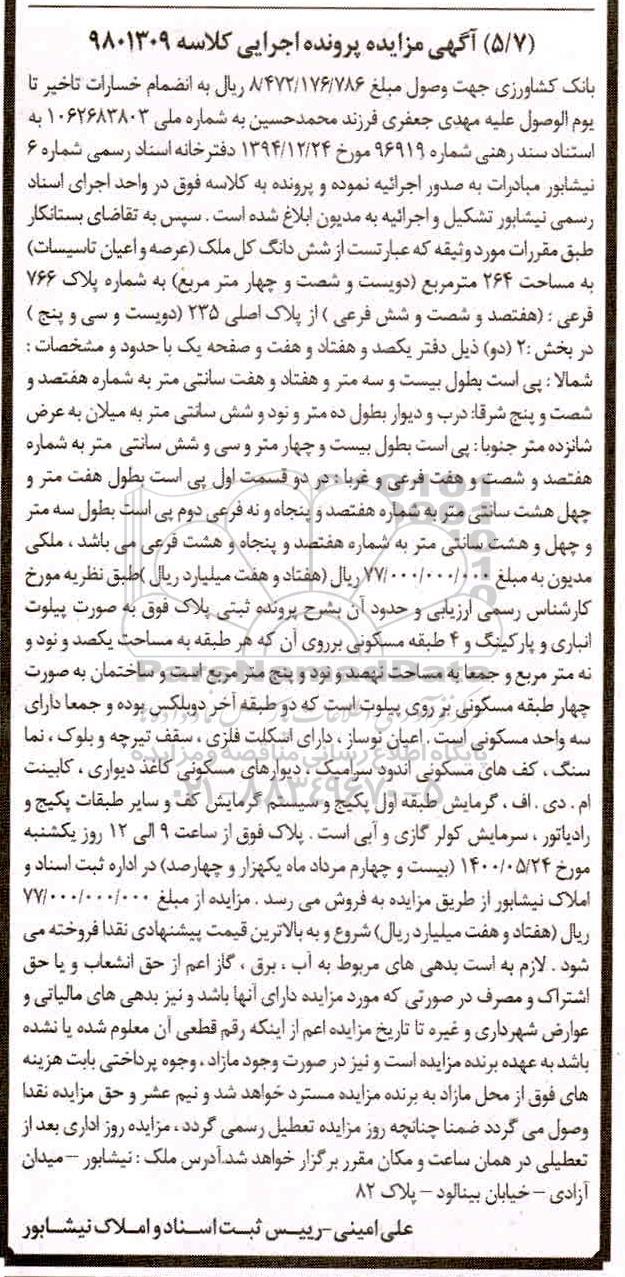 (۵/۷) آگهی مزایده پرونده اجرایی کلاسه ۹۸۰۱۳۰۹
بانک کشاورزی جهت وصول مبلغ ۸/۴۷۲/۱۷۶/۷۸۶ ریال به انضمام خسارات تاخیر تا
یوم الوصول علیه مهدی جعفری فرزند محمدحسین به شماره ملی ۱۰۶۲۶۸۳۸۰۳ به
استناد سند رهنی شماره ۹۶۹۱۹ مورخ ۱۳۹۴/۱۲/۲۴ دفترخانه اسناد رسمی شماره ۶
نیشابور مبادرات به صدور اجرائیه نموده و پرونده به کلاسه فوق در واحد اجرای اسناد
رسمی نیشابور تشکیل و اجرائیه به مدیون ابلاغ شده است . سپس به تقاضای بستانکار
طبق مقررات مورد وثیقه که عبارتست از شش دانگ کل ملک (عرصه و اعیان تاسیسات)
به مساحت ۲۶۴ مترمربع (دویست و شصت و چهار متر مربع) به شماره پلاک ۷۶۶
فرعی : (هفتصد و شصت و شش فرعی ) از پلاک اصلی ۲۳۵ (دویست و سی و پنج )
در بخش :۲ (دو) ذیل دفتر یکصد و هفتاد و هفت و صفحه یک با حدود و مشخصات :
شمالا : پی است بطول بیست و سه متر و هفتاد و هفت سانتی متر به شماره هفتصد و
شصت و پنج شرقا: درب و دیوار بطول ده متر و نود و شش سانتی متر به میلان به عرض
شانزده متر جنوبا : پی است بطول بیست و چهار متر و سی و شش سانتی متر به شماره
هفتصد و شصت و هفت فرعی و غربا : در دو قسمت اول پی است بطول هفت متر و
چهل هشت سانتی متر به شماره هفتصد و پنجاه و نه فرعی دوم پی است بطول سه متر
و چهل و هشت سانتی متر به شماره هفتصد و پنجاه و هشت فرعی می باشد ، ملکی
مدیون به مبلغ ۷۷/۰۰۰/۰۰۰/۰۰۰ ریال (هفتاد و هفت میلیارد ریال )طبق نظریه مورخ
کارشناس رسمی ارزیابی و حدود آن بشرح پرونده ثبتی پلاک فوق به صورت پیلوت
انباری و پارکینگ و ۴ طبقه مسکونی برروی آن که هر طبقه به مساحت یکصد و نود و
نه متر مربع و جمعا به مساحت نهصد و نود و پنج متر مربع است و ساختمان به صورت
چهار طبقه مسکونی بر روی پیلوت است که دو طبقه آخر دوبلکس بوده و جمعا دارای
سه واحد مسکونی است . اعیان نوساز ، دارای اسکلت فلزی ، سقف تیرچه و بلوک ، نما
سنگ ، کف های مسکونی اندود سرامیک ، دیوارهای مسکونی کاغذ دیواری ، کابینت
ام . دی . اف ، گرمایش طبقه اول پکیج و سیستم گرمایش کف و سایر طبقات پکیج و
رادیاتور ، سرمایش کولر گازی و آبی است . پلاک فوق از ساعت ۹ الی ۱۲ روز یکشنبه
مورخ ۱۴۰۰/۰۵/۲۴ (بیست و چهارم مرداد ماه یکهزار و چهارصد) در اداره ثبت اسناد و
املاک نیشابور از طریق مزایده به فروش می رسد . مزایده از مبلغ ۷۷/۰۰۰/۰۰۰/۰۰۰
ریال (هفتاد و هفت میلیارد ریال) شروع و به بالاترین قیمت پیشنهادی نقدا فروخته می
شود . لازم به است بدهی های مربوط به آب ، برق ، گاز اعم از حق انشعاب و یا حق
اشتراک و مصرف در صورتی که مورد مزایده دارای آنها باشد و نیز بدهی های مالیاتی و
عوارض شهرداری و غیره تا تاریخ مزایده اعم از اینکه رقم قطعی آن معلوم شده یا نشده
باشد به عهده برنده مزایده است و نیز در صورت وجود مازاد ، وجوه پرداختی بابت هزینه
های فوق از محل مازاد به برنده مزایده مسترد خواهد شد و نیم عشر و حق مزایده نقدا
وصول می گردد ضمنا چنانچه روز مزایده تعطیل رسمی گردد ، مزایده روز اداری بعد از
تعطیلی در همان ساعت و مکان مقرر برگزار خواهد شد.آدرس ملک : نیشابور – میدان
آزادی – خیابان بینالود – پلاک ۸۲
علی امینی –رییس ثبت اسناد و املاک نیشابور
ParsNamadData
پایگاه اطلاع رسانی مناقصه و مزایده
۰۲۱-۸۸۳۴۹۶۷۰-۵